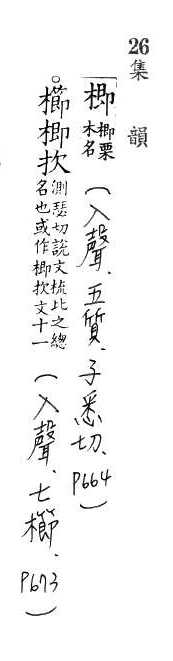 26集 韻
「楖 楖栗木名(入聲、五質、子悉切、P664)
○櫛楖扻 測瑟切說文梳比之總名也或作楖扻文十一(入聲、七櫛、P673)